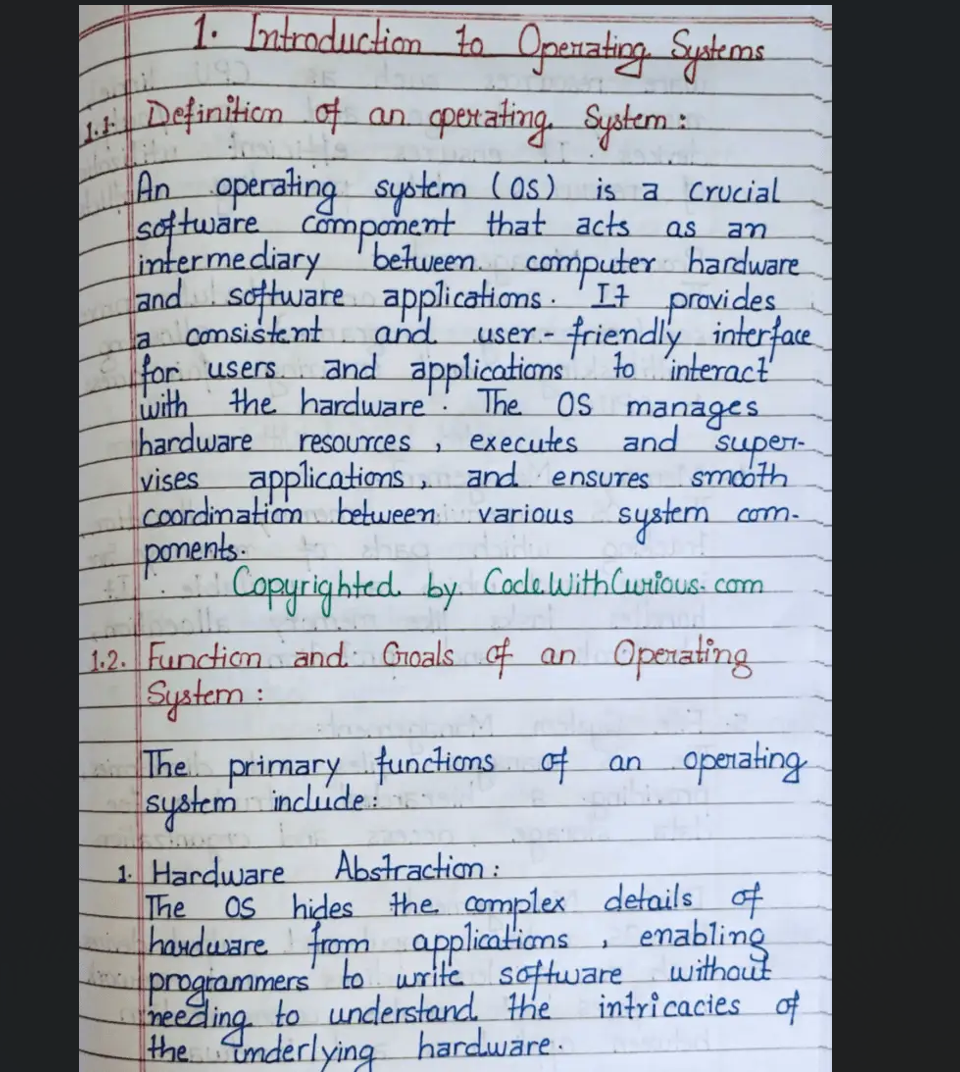 1. Introduction to Operating Systems
1.1. Definition of an operating System :
An operating system (OS) is a crucial
software component that acts as an
intermediary between computer hardware
and software applications. It provides
a consistent and user-friendly interface
for users and applications to interact
with the hardware. The OS manages
hardware resources, executes and super-
vises applications, and ensures smooth
coordination between various system com-
ponents.
Copyrighted by CodeWithCurious.com
1.2. Function and Goals of an Operating
System :
The primary functions of an operating
system include :
1. Hardware Abstraction :
The OS hides the complex details of
hardware from applications, enabling
programmers to write software without
needing to understand the intricacies of
the underlying hardware.